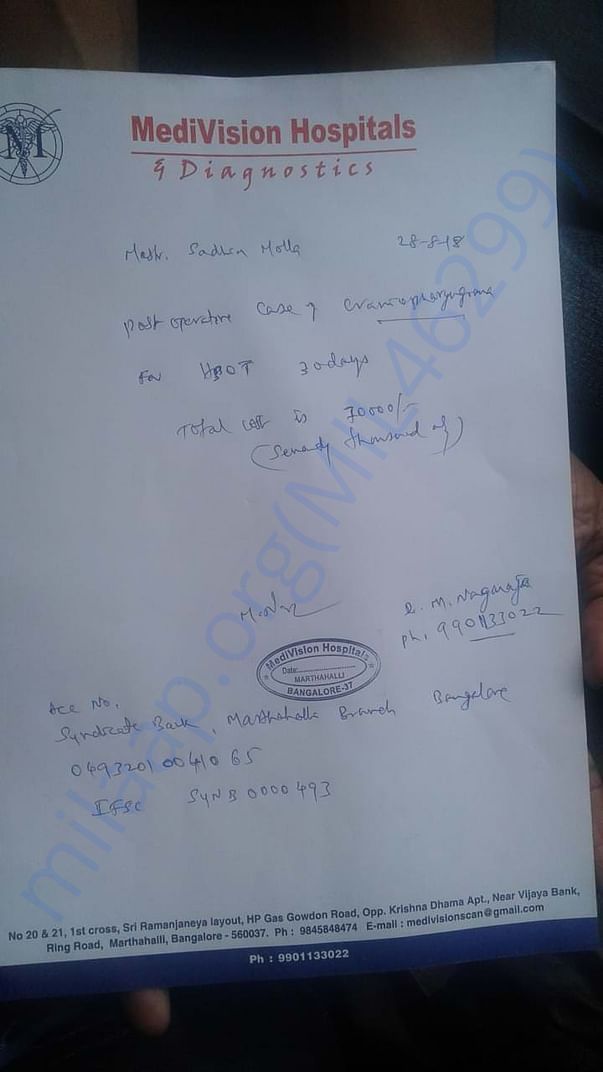 M
MediVision Hospitals
& Diagnostics
Mastr. Sadhin Molla 28-8-18
Post operative case of craniopharyngioma
For HBOT 30 days
Total cost is 70000/-
(Seventy thousand only)
D. M. Nagaraja
Ph. 9901133022
MediVision Hospitals
Date:
MARTHAHALLI
BANGALORE-37
Acc No.
Syndicate Bank, Marthahalli Branch Bangalore
04932010041065
IFSC SYNB0000493
No 20 & 21, 1st cross, Sri Ramanjaneya layout, HP Gas Gowdon Road, Opp. Krishna Dhama Apt., Near Vijaya Bank,
Ring Road, Marthahalli, Bangalore - 560037. Ph : 9845848474 E-mail : medivisionscan@gmail.com
Ph : 9901133022
milaap.org(MIL46299)